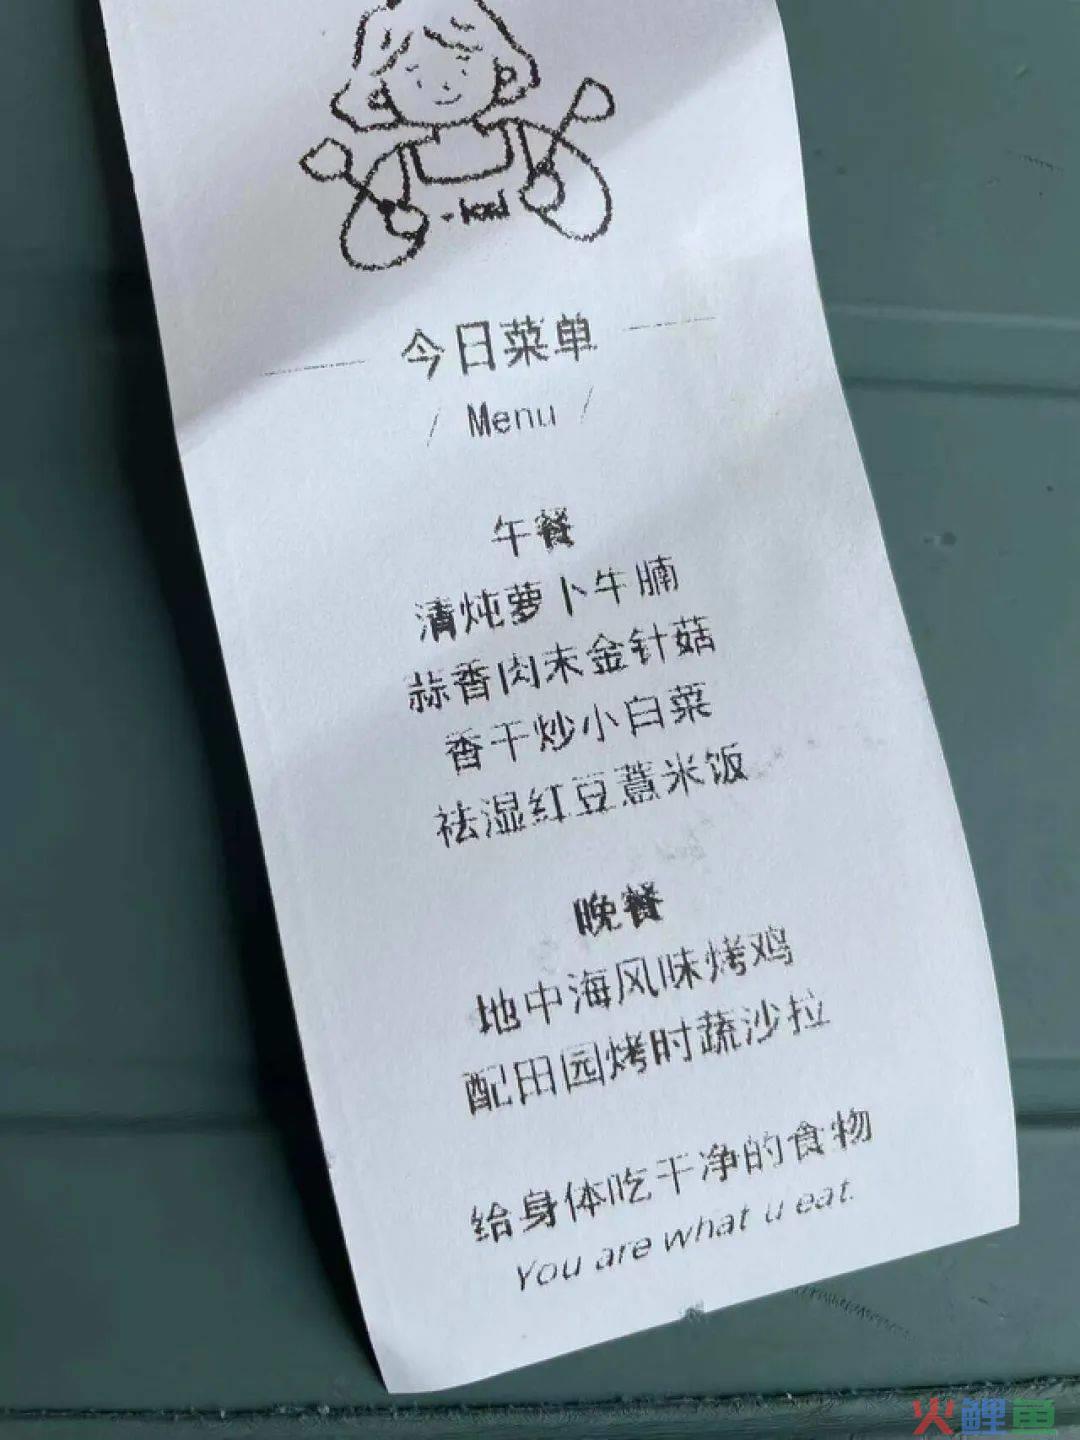 今日菜单
/ Menu /
午餐
清炖萝卜牛腩
蒜香肉末金针菇
香干炒小白菜
祛湿红豆薏米饭
晚餐
地中海风味烤鸡
配田园烤时蔬沙拉
给身体吃干净的食物
You are what u eat.
火鲤鱼